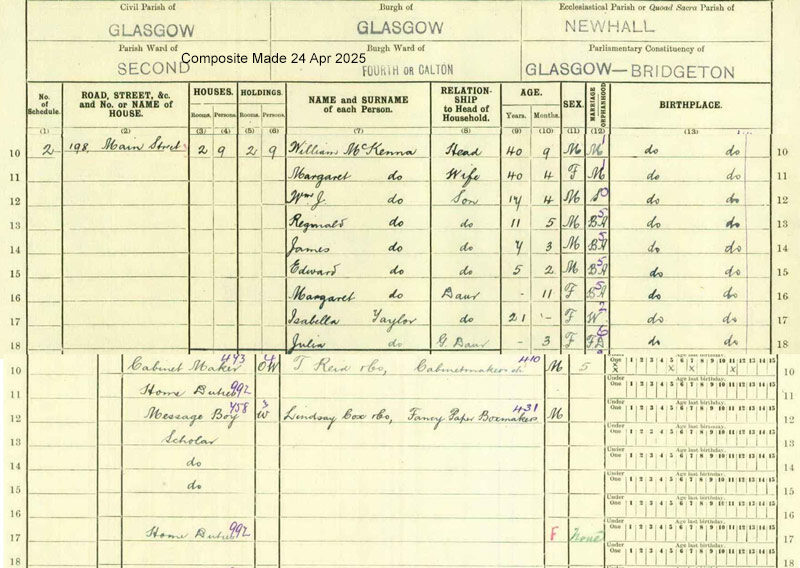 Civil Parish of Burgh of Ecclesiastical Parish or Quoad Sacra Parish of
GLASGOW GLASGOW NEWHALL
Parish Ward of Burgh Ward of Parliamentary Constituency of
Composite Made 24 Apr 2025
SECOND FOURTH OR CALTON GLASGOW—BRIDGETON
No. of Schedule. ROAD, STREET, &c. and No. or NAME of HOUSE. HOUSES. Rooms. Persons. HOLDINGS. Rooms. Persons. NAME and SURNAME of each Person. RELATION-SHIP to Head of Household. AGE. Years. Months. SEX. MARRIAGE ORPHANHOOD BIRTHPLACE.
(1) (2) (3) (4) (5) (6) (7) (8) (9) (10) (11) (12) (13)
10 2 198, Main Street 2 9 2 9 William McKenna Head 40 9 M M 1 do do 10
11 Margaret do Wife 40 4 F M 1 do do 11
12 Wm J. do Son 17 4 M S 0 do do 12
13 Reginald do do 11 5 M BA 5 do do 13
14 James do do 7 3 M BA 5 do do 14
15 Edward do do 5 2 M BA 5 do do 15
16 Margaret do Daur - 11 F BA 5 do do 16
17 Isabella Taylor do 21 - F W do do 17
18 Julia do G. Daur - 3 F do do 18
10 Cabinet Maker 473 OW 4 T Reid & Co, Cabinetmakers 410 M 5 10
11 Home Duties 992 11
12 Message Boy 458 W 3 Lindsay Cox & Co, Fancy Paper Boxmakers 431 M 12
13 Scholar 13
14 do 14
15 do 15
16 16
17 Home Duties 992 F None 17
18 18